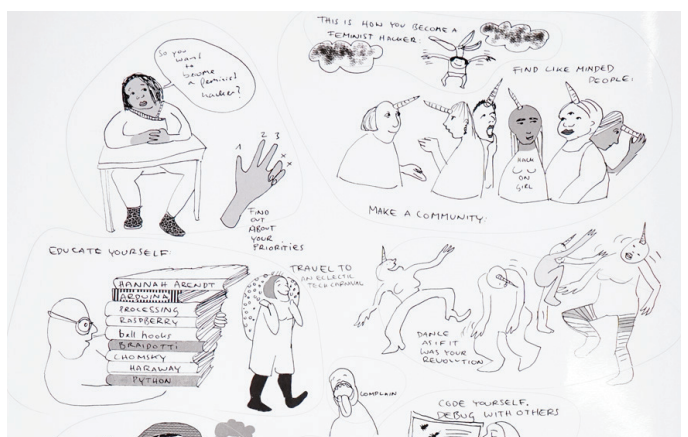 So you
want
to
become
a feminist
hacker?
1 2 3 x x
FIND
OUT
ABOUT
YOUR
PRIORITIES
THIS IS HOW YOU BECOME A
FEMINIST HACKER.
FIND LIKE MINDED
PEOPLE:
HACK
ON
GIRL
MAKE A COMMUNITY.
EDUCATE YOURSELF:
HANNAH ARENDT
ARDUINA
PROCESSING
RASPBERRY
bell hooks
BRAIDOTTI
CHOMSKY
HARAWAY
PYTHON
TRAVEL TO
AN ECLECTIC
TECH CARNIVAL
DANCE
AS IF IT
WAS YOUR
REVOLUTION
COMPLAIN
CODE YOURSELF.
DEBUG WITH OTHERS